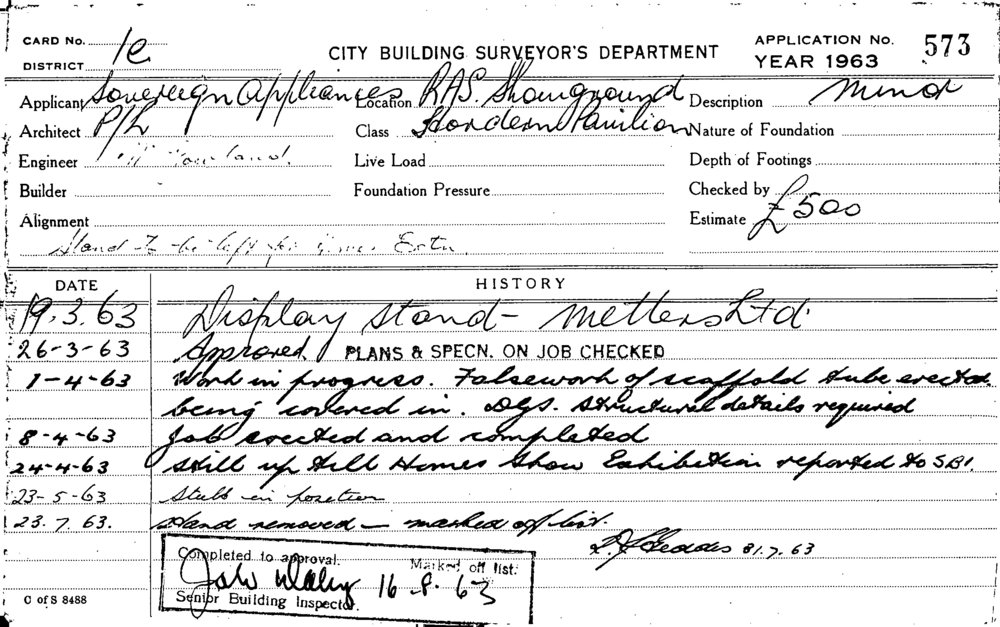 CARD No. 1c
CITY BUILDING SURVEYOR'S DEPARTMENT
APPLICATION No. 573
DISTRICT
YEAR 1963
Applicant Sovereign Appliances Location RAS. Showground Description Minor
Architect P/L Class Hordern Pavilion Nature of Foundation
Engineer Live Load Depth of Footings
Builder Foundation Pressure Checked by
Alignment Estimate £500
Stand to be left for Extn.
DATE HISTORY
19.3.63 Display stand - Metters Ltd.
26-3-63 Approved. PLANS & SPECN. ON JOB CHECKED
1-4-63 Work in progress. Falsework of scaffold tube erected
being covered in. Structural details required
8-4-63 Job erected and completed
24-4-63 Still up till Homes Show Exhibition reported to SBI.
23-5-63 Still in position
23.7.63. Stand removed - marked off list.
Geddes 31.7.63
Completed to approval. Marked off list.
16-8-63
Senior Building Inspector.
C of S 8488